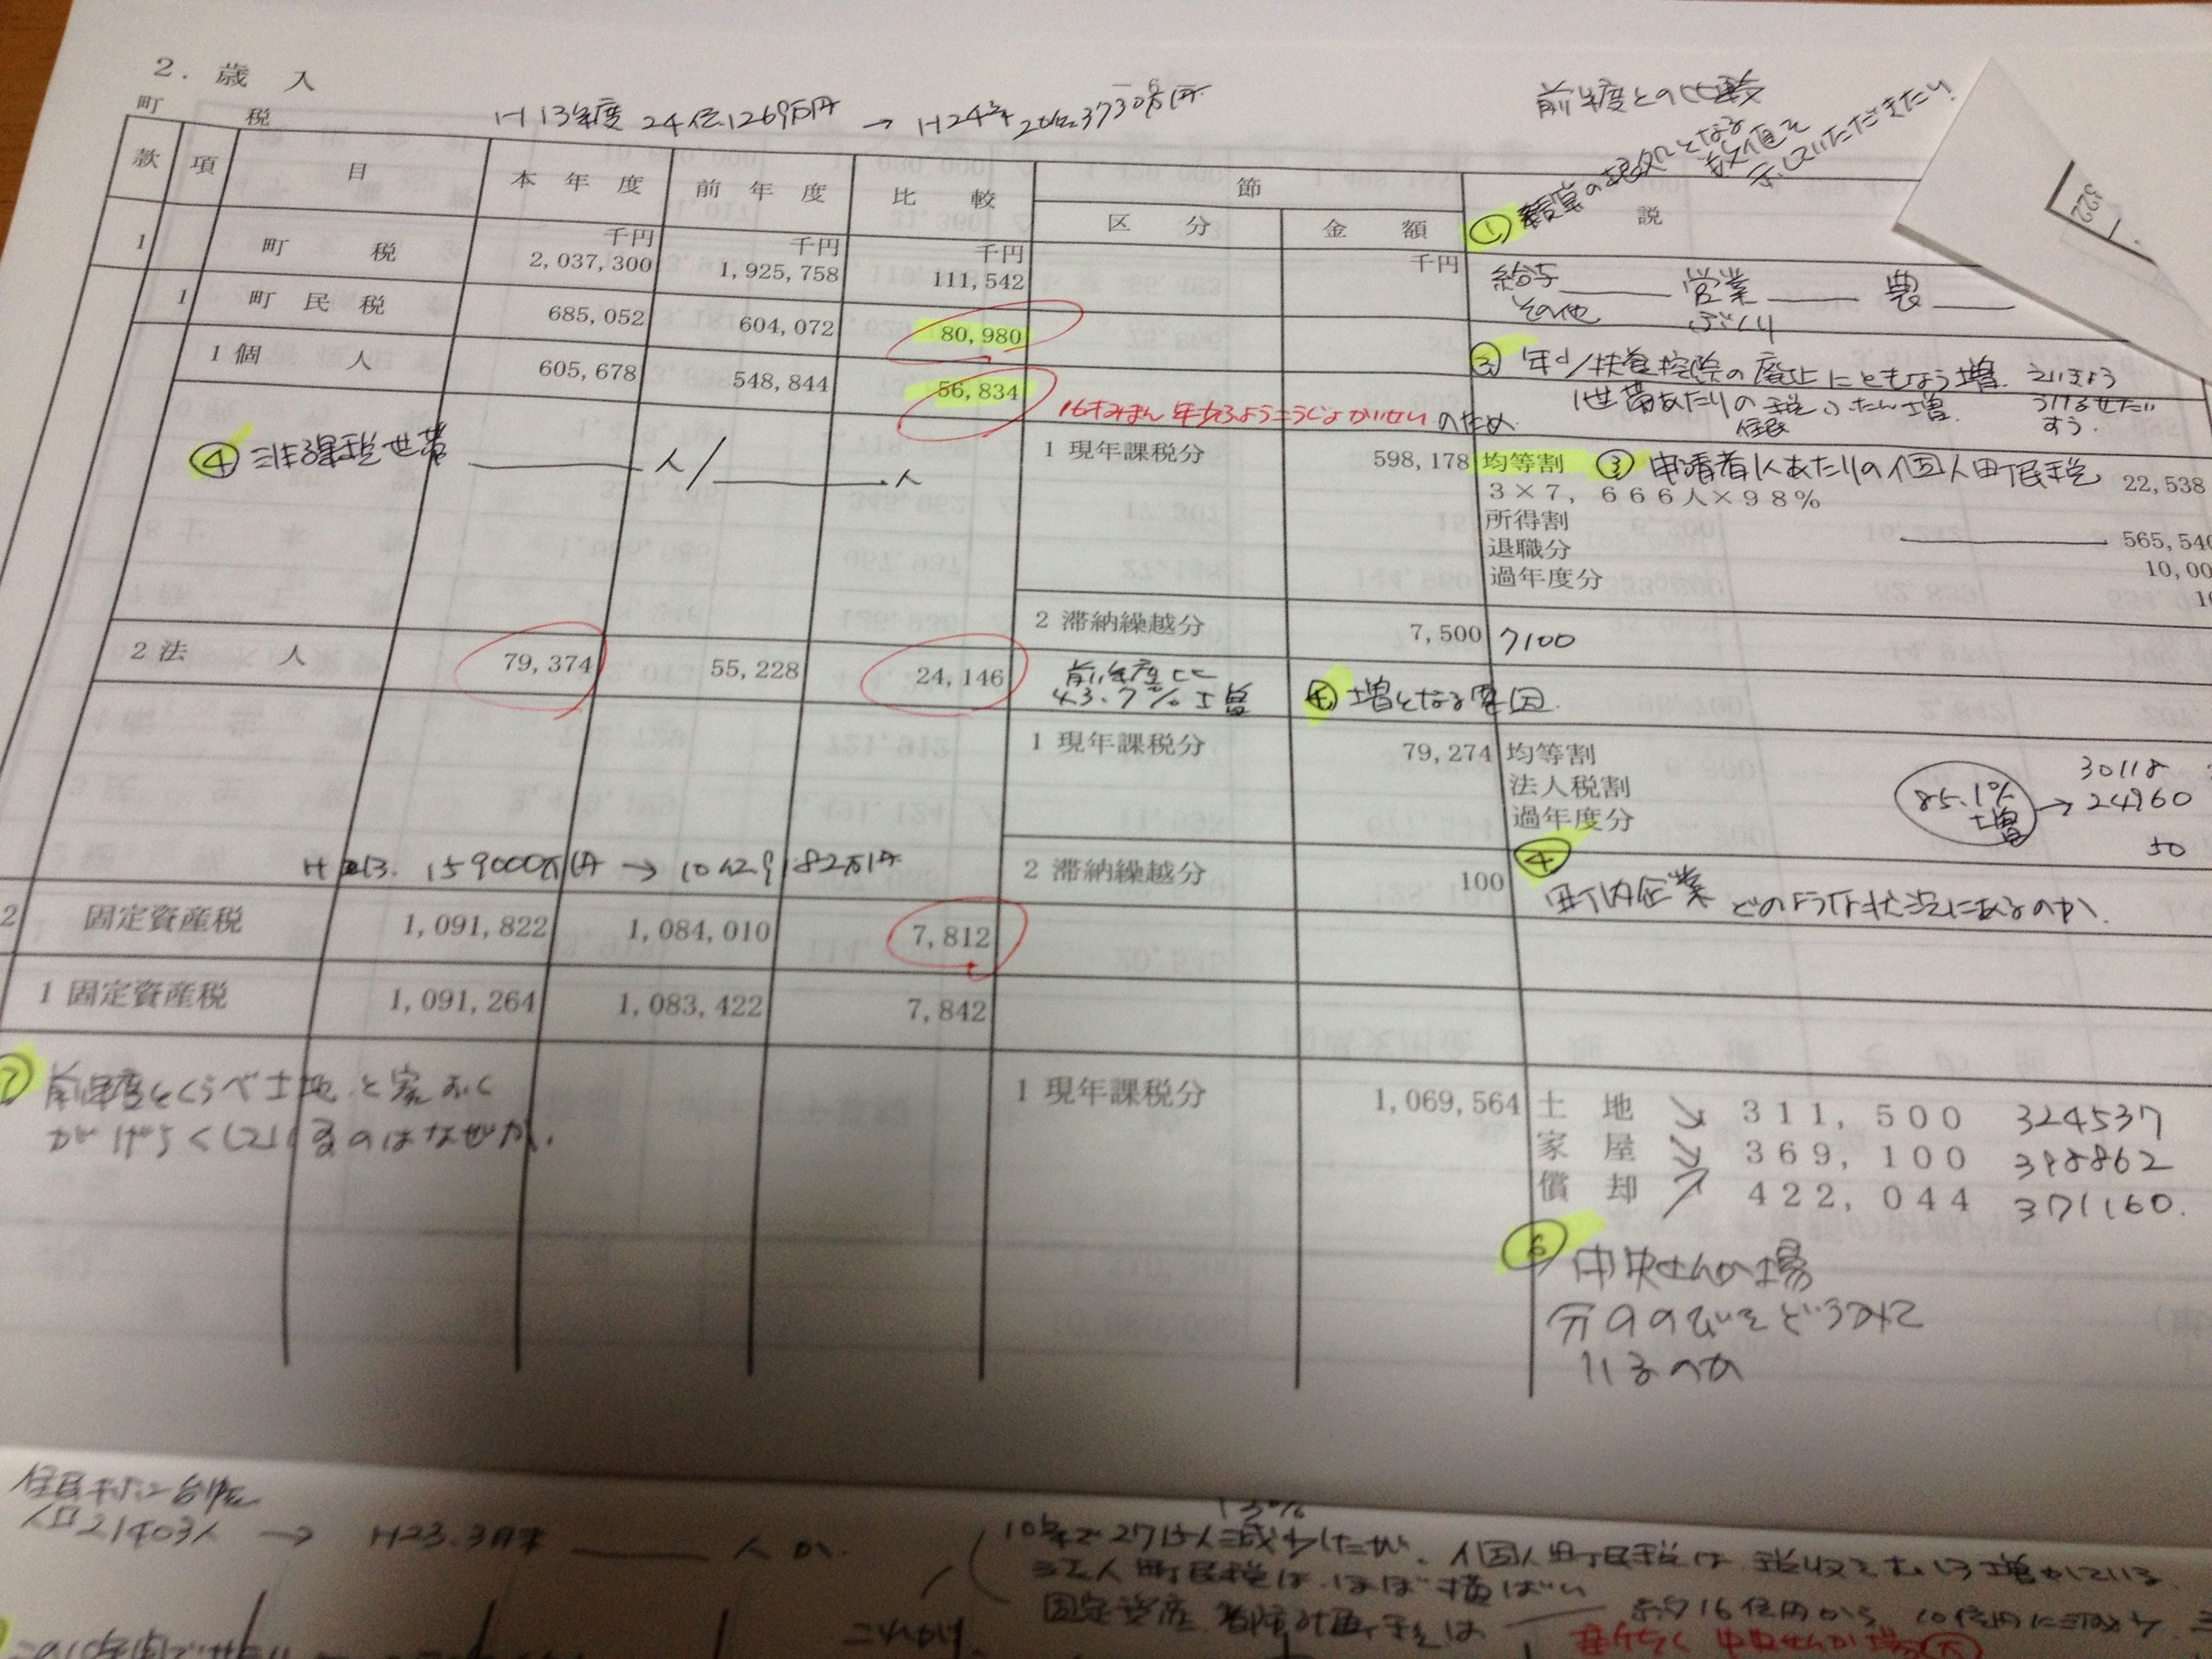 2. 歳 入
町 税
H13年度 24億1269万円 → H24年 20億3730万円
前年度との比較
款 項 目 本 年 度 前 年 度 比 較 節 説
区 分 金 額
① 積算の根拠となる
数値を
示していただきたい!
千円 千円 千円 千円
1 町 税 2,037,300 1,925,758 111,542
給与 営業 農
その他 ぶんり
1 町 民 税 685,052 604,072 80,980
1 個 人 605,678 548,844 56,834
② 年少扶養控除の廃止にともなう増. えいきょう
1世帯あたりの 税ふたん増. うけるせたい
住民 すう.
16才みまん 年少ふようこうじょ かいせい のため
④ 非課税世帯 人/ 人
1 現年課税分 598,178 均等割 ③ 申請者1人あたりの個人町民税 22,538
3×7,666人×98%
所得割 565,540
退職分 10,00
過年度分 10
2 滞納繰越分 7,500 7100
2 法 人 79,374 55,228 24,146 前年度比 43.7%増 増となる要因.
1 現年課税分 79,274 均等割 30118
法人税割 85.1%増 → 24960
過年度分 50
2 滞納繰越分 100
④ 町内企業 どのような状況にあるのか.
H13. 159000万円 → 10億9182万円
2 固定資産税 1,091,822 1,084,010 7,812
1 固定資産税 1,091,264 1,083,422 7,842
1 現年課税分 1,069,564 土 地 ↘ 311,500 324537
家 屋 ↘ 369,100 398862
償 却 ↗ 422,044 371160.
⑦ 前年度とくらべ土地と家おく
がげらくしているのはなぜか.
⑥ 中央せんか場
分ののびをどうみて
いるのか
住民きほん台帳
人口21403人 → H23.3月末 人か.
13%
10年で 27 人減少したが、個人町民税は 税収を むしろ増やしている.
法人町民税は ほぼ横ばい
固定資産 都市計画税は 約16億円から 10億円に減少